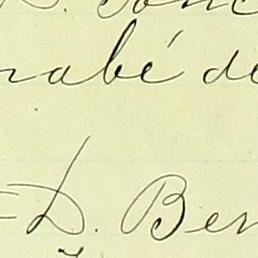 nabé de
D. Ben